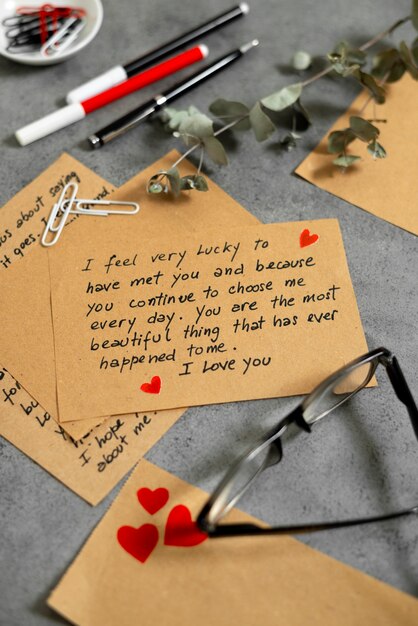 ous about saying
it goes. I
I feel very Lucky to
have met you and because
you continue to choose me
every day. you are the most
beautiful thing that has ever
happened to me.
I love you
for
be
Lo
I hope
about me